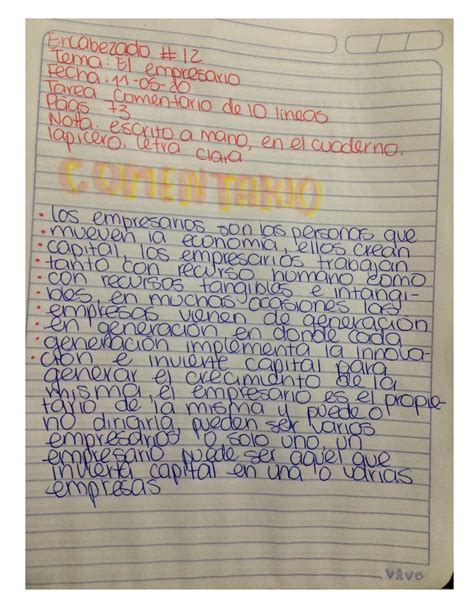 Encabezado # 12
Tema: El empresario
Fecha: 11-05-20
Tarea comentario de 10 lineas
Págs 73
Nota: escrito a mano, en el cuaderno,
lapicero, letra clara
COMENTARIO
• los empresarios son las personas que
• mueven la economía, ellos crean
• capital, los empresarios trabajan
• tanto con recurso humano como
• con recursos tangibles e intangi-
• bles, en muchas ocasiones las
• empresas vienen de generación
• en generación en donde cada
• generación implementa la innova-
• ción e invierte capital para
generar el crecimiento de la
misma, el empresario es el propie-
tario de la misma y puede o
no dirigirla, pueden ser varios
empresarios o solo uno, un
empresario puede ser aquel que
invierta capital en una o varias
empresas
VIVO